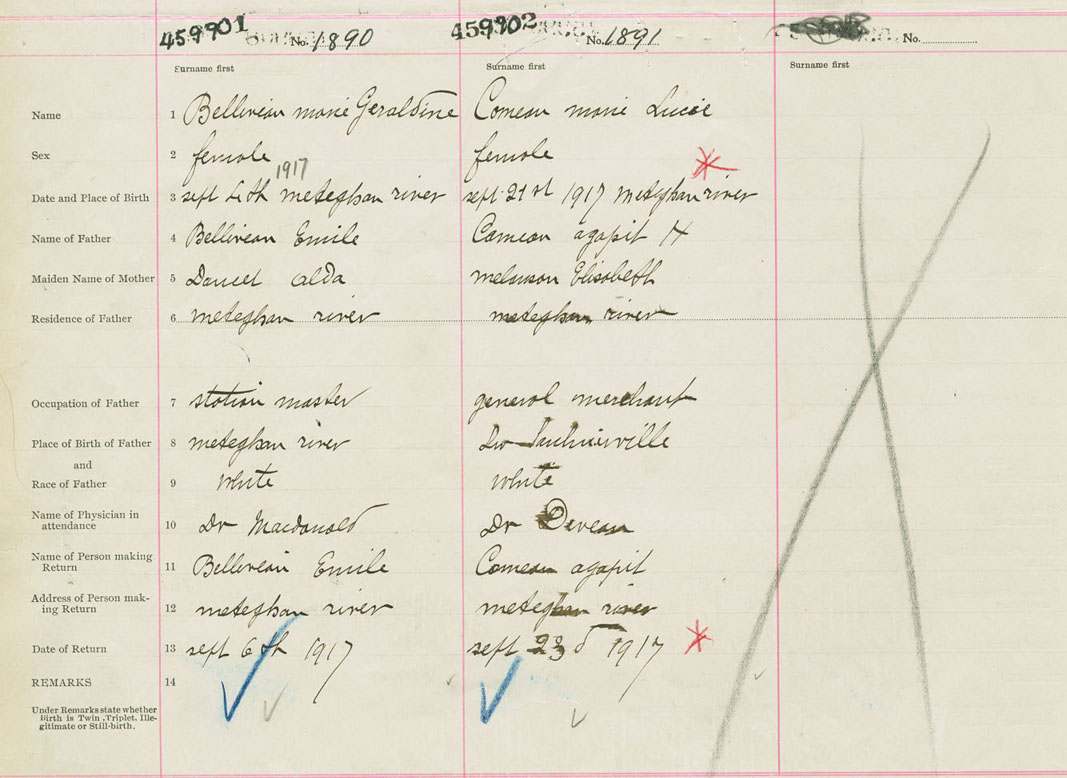 459901 No. 1890 459902 No. 1891 No.
Surname first Surname first Surname first
Name 1 Belliveau marie Geraldine Comeau marie Lucie
Sex 2 female female
1917
Date and Place of Birth 3 sept 4th meteghan river sept 21st 1917 meteghan river
Name of Father 4 Belliveau Emile Comeau agapit H
Maiden Name of Mother 5 Doucet alda melanson Elisabeth
Residence of Father 6 meteghan river meteghan river
Occupation of Father 7 station master general merchant
Place of Birth of Father 8 meteghan river
and
Race of Father 9 white white
Name of Physician in
attendance 10 Dr Macdonald Dr Deveau
Name of Person making
Return 11 Belliveau Emile Comeau agapit
Address of Person mak-
ing Return 12 meteghan river meteghan river
Date of Return 13 sept 6th 1917 sept 23d 1917
REMARKS 14
Under Remarks state whether
Birth is Twin, Triplet, Ille-
gitimate or Still-birth.